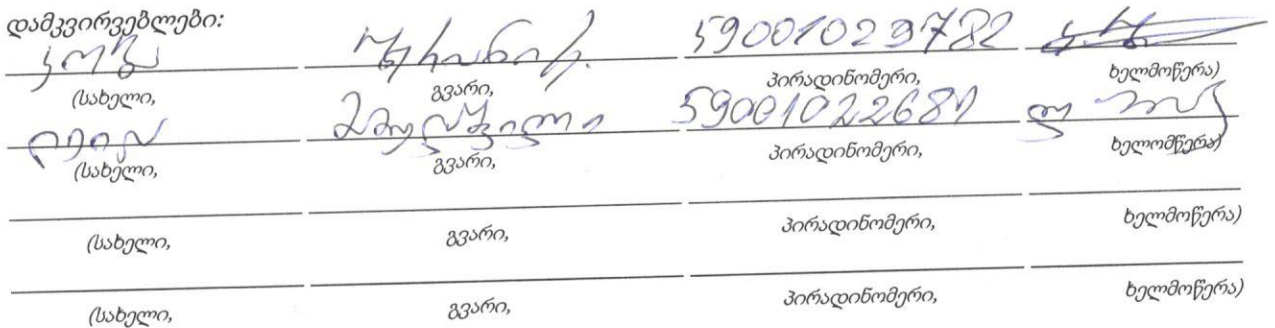 დამკვირვებლები:
კობა 59001029782
(სახელი, გვარი, პირადინომერი, ხელმოწერა)
59001022681
(სახელი, გვარი, პირადინომერი, ხელომწერა)
(სახელი, გვარი, პირადინომერი, ხელმოწერა)
(სახელი, გვარი, პირადინომერი, ხელმოწერა)